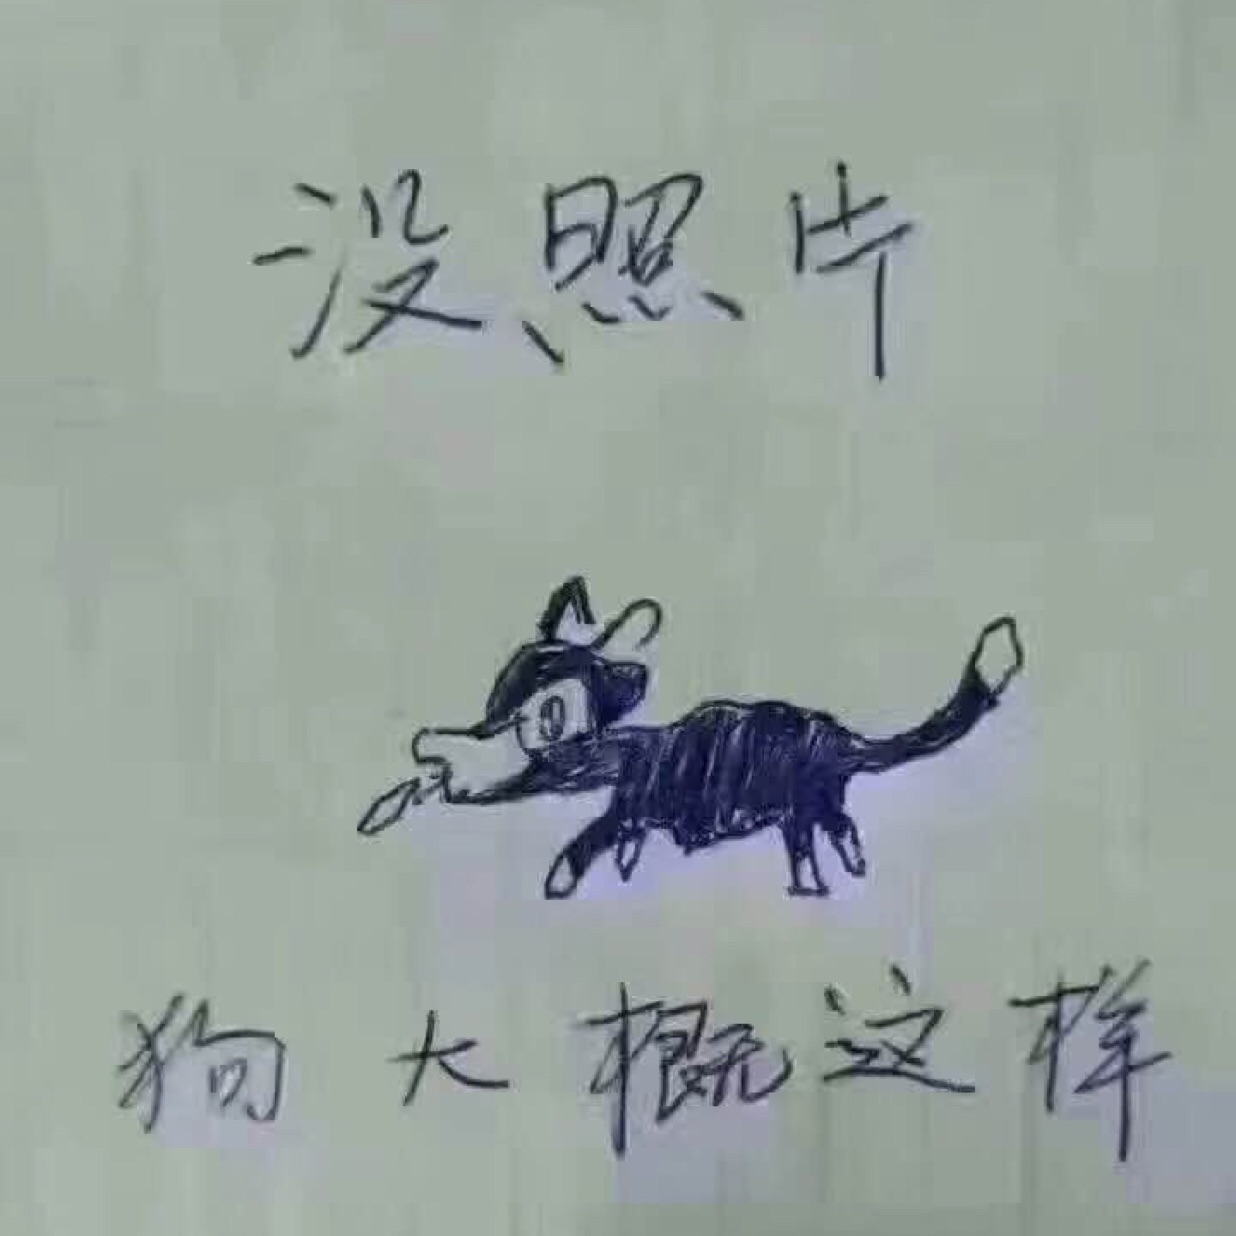 没照片
狗大概这样